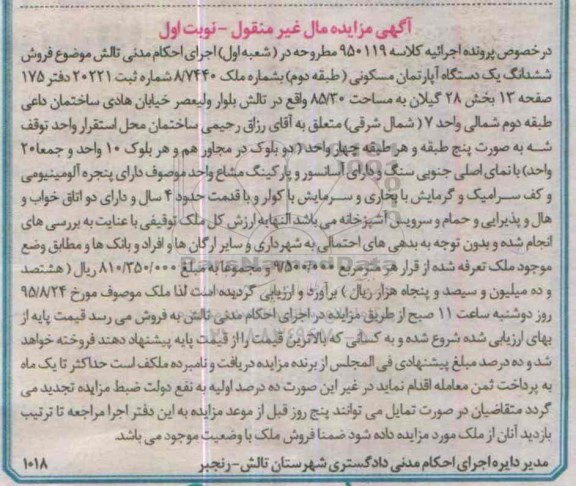 آگهی مزایده مال غیر منقول - نوبت اول
در خصوص پرونده اجرائیه کلاسه ۹۵۰۱۱۹ مطروحه در ( شعبه اول) اجرای احکام مدنی تالش موضوع فروش
ششدانگ یک دستگاه آپارتمان مسکونی ( طبقه دوم) بشماره ملک ۸/۷۴۴۰ شماره ثبت ۲۰۲۲۱ دفتر ۱۷۵
صفحه ۱۳ بخش ۲۸ گیلان به مساحت ۸۵/۳۰ واقع در تالش بلوار ولیعصر خیابان هادی ساختمان داعی
طبقه دوم شمالی واحد ۷ ( شمال شرقی) متعلق به آقای رزاق رحیمی ساختمان محل استقرار واحد توقف
شه به صورت پنج طبقه و هر طبقه چهار واحد ( دو بلوک در مجاور هم و هر بلوک ۱۰ واحد و جمعا۲۰
واحد) با نمای اصلی جنوبی سنگ و دارای آسانسور و پارکینگ مشاع واحد موصوف دارای پنجره آلومینیومی
و کف سرامیک و گرمایش با بخاری و سرمایش با کولر و با قدمت حدود ۴ سال و دارای دو اتاق خواب و
هال و پذیرایی و حمام و سرویس آشپزخانه می باشد النهایه ارزش کل ملک توقیفی با عنایت به بررسی های
انجام شده و بدون توجه به بدهی های احتمالی به شهرداری و سایر ارگان ها و افراد و بانک ها و مطابق وضع
موجود ملک تعرفه شده از قرار هر مترمربع ۹/۵۰۰/۰۰۰ و مجموعا به مبلغ ۸۱۰/۳۵۰/۰۰۰ ریال ( هشتصد
و ده میلیون و سیصد و پنجاه هزار ریال ) برآورد و ارزیابی گردیده است لذا ملک موصوف مورخ ۹۵/۸/۲۴
روز دوشنبه ساعت ۱۱ صبح از طریق مزایده در اجرای احکام مدنی تالش به فروش می رسد قیمت پایه از
بهای ارزیابی شده شروع شده و به کسانی که بالاترین قیمت را از قیمت پایه پیشنهاد دهند فروخته خواهد
شد و ده درصد مبلغ پیشنهادی فی المجلس از برنده مزایده دریافت و نامبرده مکلف است حداکثر تا یک ماه
به پرداخت ثمن معامله اقدام نماید در غیر این صورت ده درصد اولیه به نفع دولت ضبط مزایده تجدید می
گردد متقاضیان در صورت تمایل می توانند پنج روز قبل از موعد مزایده به این دفتر اجرا مراجعه تا ترتیب
بازدید آنان از ملک مورد مزایده داده شود ضمنا فروش ملک با وضعیت موجود می باشد.
مدیر دایره اجرای احکام مدنی دادگستری شهرستان تالش - رنجبر ۱۰۱۸